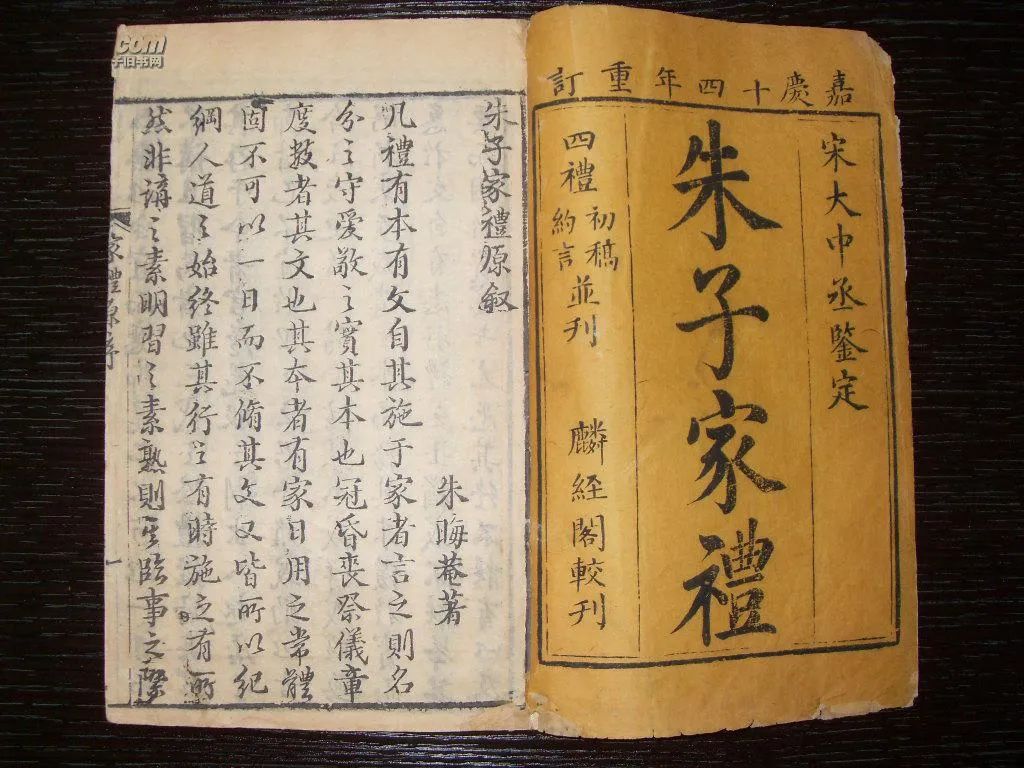 嘉慶十四年重訂
宋大中丞鑒定
朱子家禮
四禮初稿約言並刊
麟經閣較刊
朱子家禮原敘
朱晦菴著
凡禮有本有文自其施于家者言之則名
分之守愛敬之實其本也冠昏喪祭儀章
度数者其文也其夲者有家日用之常體
固不可以一日而不脩其文又皆所以紀
綱人道之始終雖其行之有時施之有所
然非講之素明習之素熟則其臨事之際
家禮原序
一
.com
子旧书网